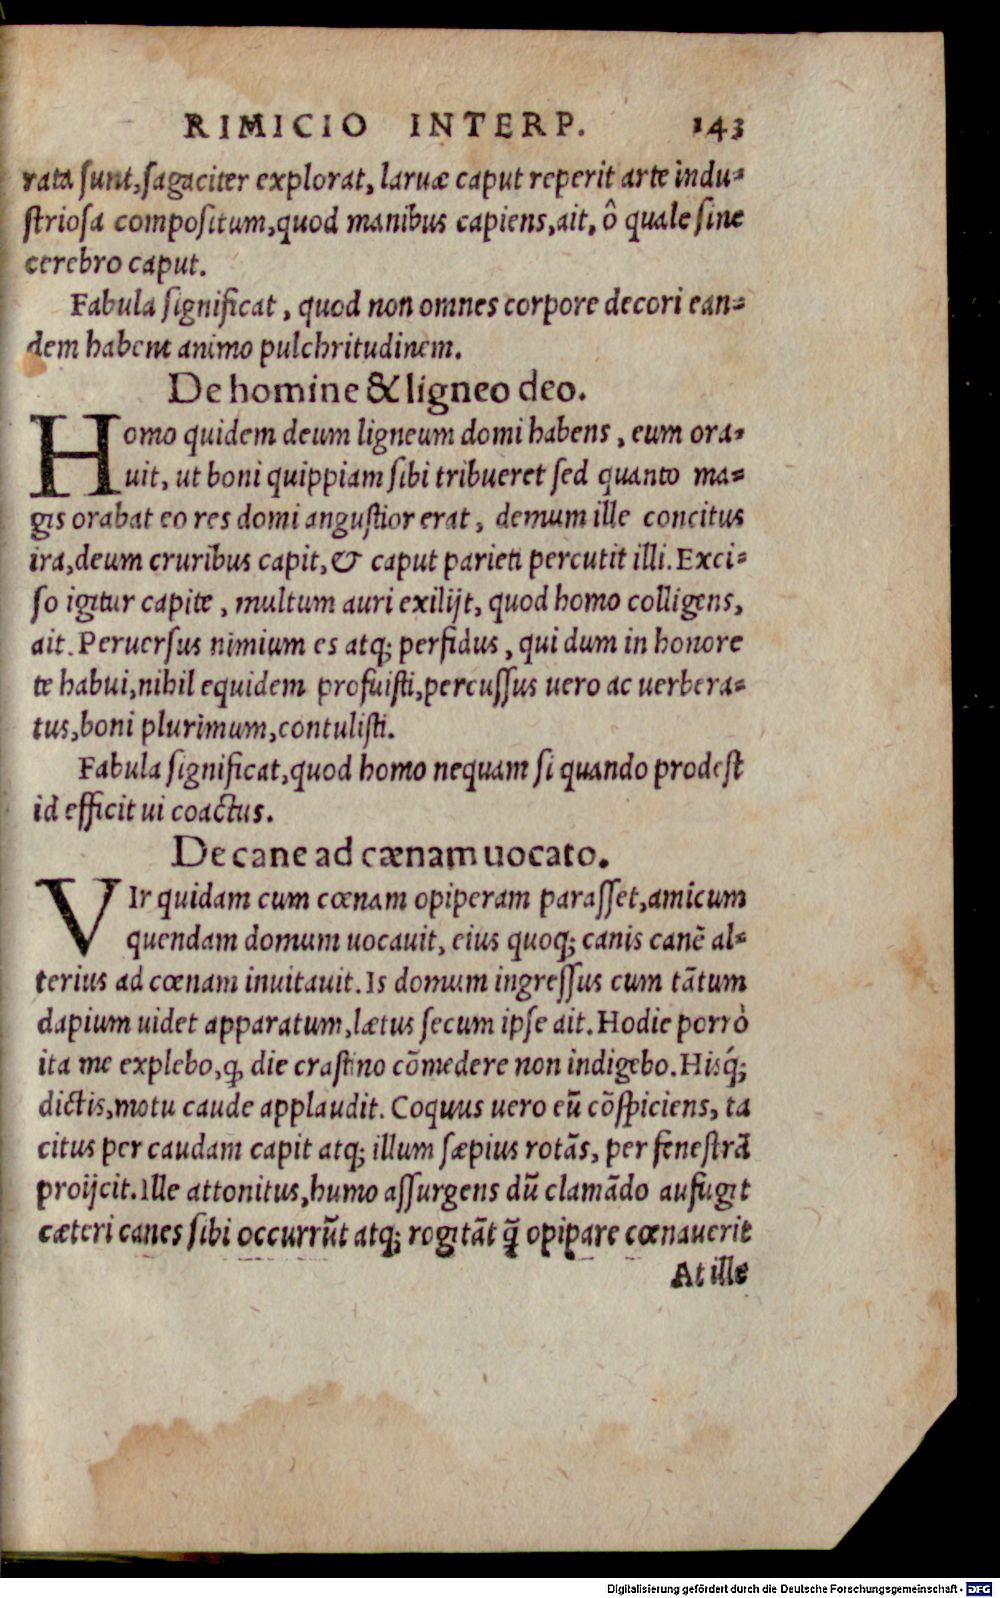 RIMICIO INTERP. 143
rata sunt, sagaciter explorat, laruæ caput reperit arte indu-
striosa compositum, quod manibus capiens, ait, ô quale sine
cerebro caput.
Fabula significat, quod non omnes corpore decori ean-
dem habent animo pulchritudinem.
De homine & ligneo deo.
Homo quidem deum ligneum domi habens, eum ora-
uit, ut boni quippiam sibi tribueret sed quanto ma-
gis orabat eo res domi angustior erat, demum ille concitus
ira, deum cruribus capit, & caput parieti percutit illi. Exci-
so igitur capite, multum auri exilijt, quod homo colligens,
ait. Peruersus nimium es atq; perfidus, qui dum in honore
te habui, nihil equidem profuisti, percussus uero ac uerbera-
tus, boni plurimum, contulisti.
Fabula significat, quod homo nequam si quando prodest
id efficit ui coactus.
De cane ad cænam uocato.
VIr quidam cum cœnam opiperam parasset, amicum
quendam domum uocauit, eius quoq; canis canẽ al-
terius ad cœnam inuitauit. Is domum ingressus cum tãtum
dapium uidet apparatum, lætus secum ipse ait. Hodie porrò
ita me explebo, ꝙ die crastino cõmedere non indigebo. Hisq́;
dictis, motu caude applaudit. Coquus uero eũ cõspiciens, ta
citus per caudam capit atq; illum sæpius rotãs, per fenestrã
proijcit. Ille attonitus, humo assurgens dũ clamãdo aufugit
cæteri canes sibi occurrũt atq; rogitãt q̃ opipare cœnauerit
At ille
Digitalisierung gefördert durch die Deutsche Forschungsgemeinschaft - DFG